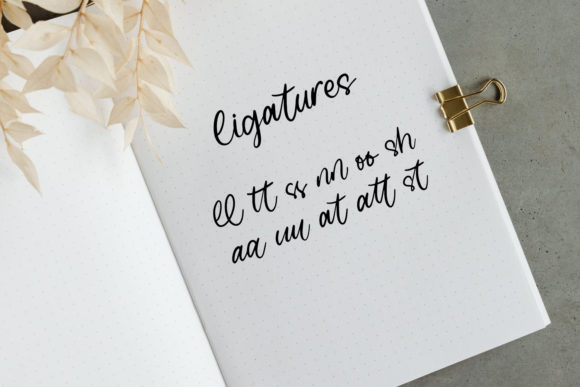 ligatures
ll tt ss nn oo sh
aa uu at att st